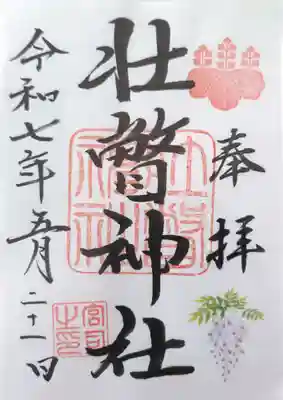 奉拝
壮瞥神社
令和七年五月二十一日
宮司之印